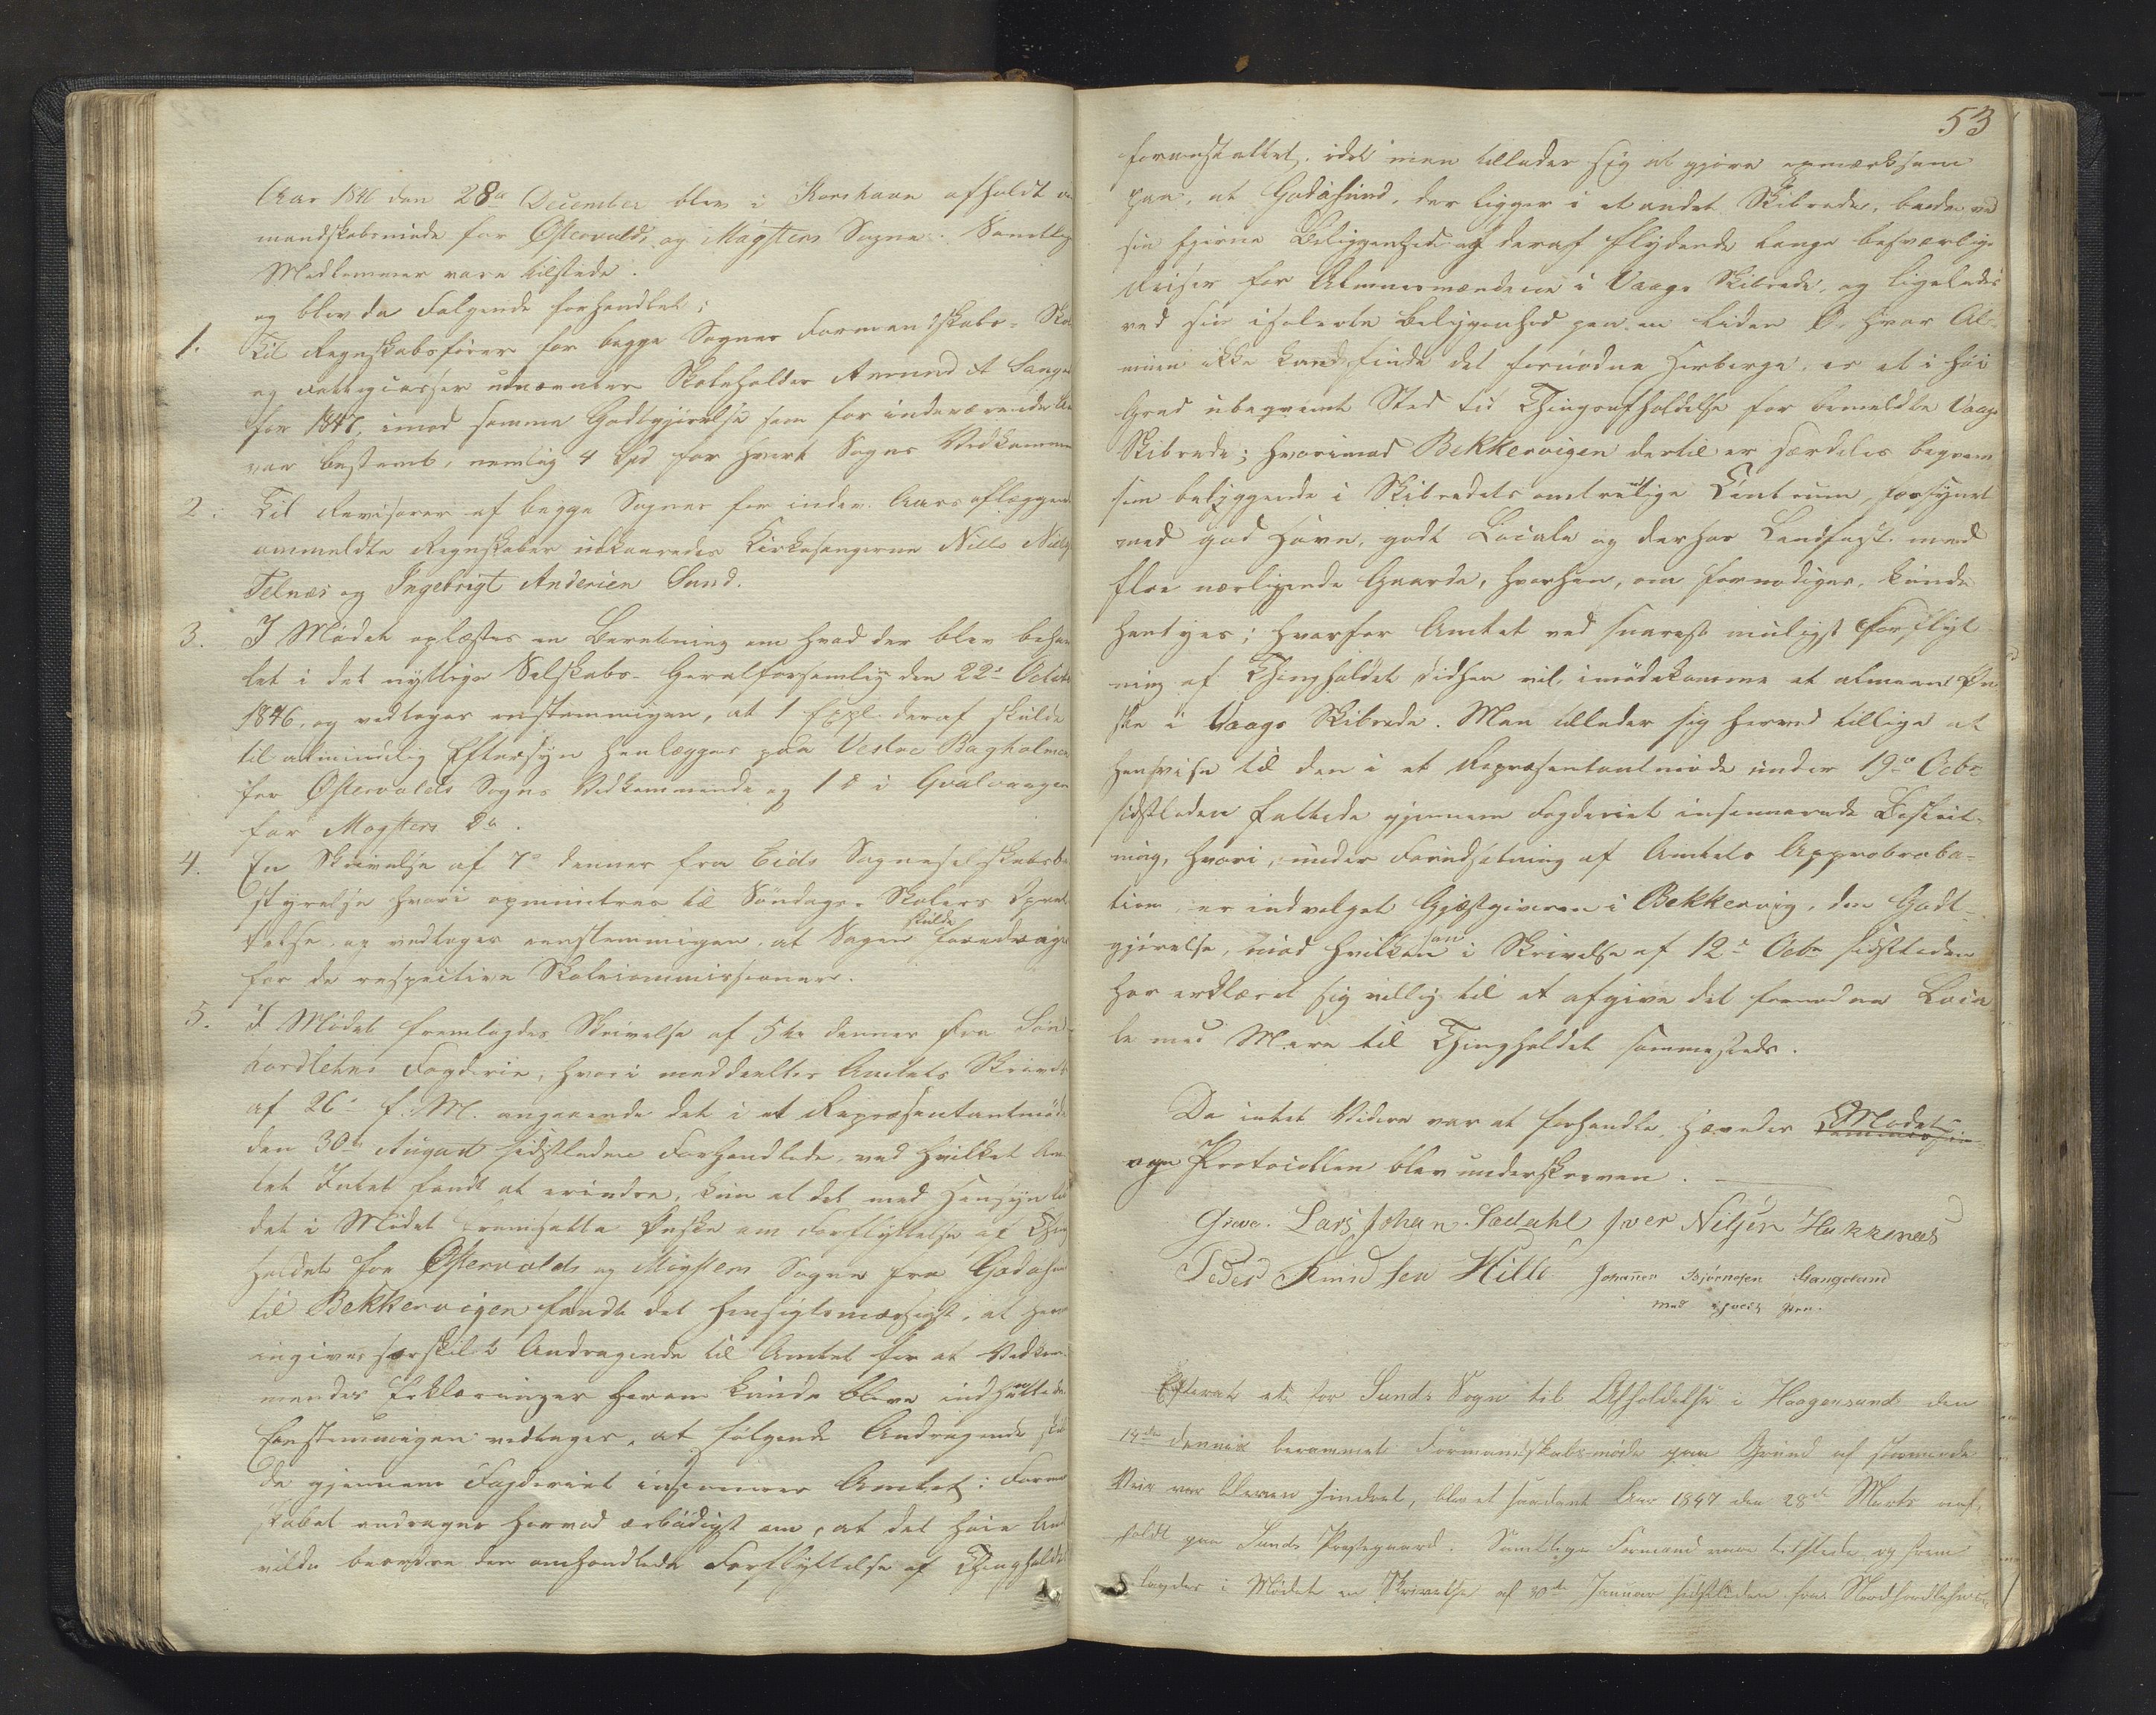 Aar 1846 den 28de December blev i Korshavn afholdt
mandskabsmøde for Østervolds og Møgsters Sogne. Samtlige
Medlemmer vare tilstede.
og blev da Følgende forhandlet:
1. Til Regnskabsfører for begge Sognes Formandskabs- Skole
og Fattigcasser udnævntes Skoleholder Amund A Lange
for 1847, imod samme Godtgjørelse som for indeværende Aar
var bestemt, nemlig 4 Spd for hvert Sogns Vedkommende
2. Til Revisorer af begge Sognes for indev. Aars aflæggende
ommeldte Regnskaber udkaaredes Kirkesangerne Nills Nilsen
Telnæs og Ingebrigt Andersen Sund.
3. I Mødet oplæstes en Beretning om hvad der blev behand
let i det nyttige Selskabs Geralforsamlig den 22de October
1846, og vedtoges enstemmigen, at 1 Expl. deraf skulde
til almindelig Eftersyn henlægges paa Vestre Bagholmen
for Østervolds Sogns Vedkommende og 1 d i Hvalvaagen
for Møgsters Do.
4. En Skrivelse af 7de dennes fra Eids Sogneselskabsbe
styrelse hvori opmuntres til Søndags-Skolers Opret
telse, og vedtoges eenstemmigen, at Sagen skulde foredrages
for de respective Skolecommissioner.
5. I Mødet fremlagdes Skrivelse af 5te dennes fra Sønd
hordlehns Fogderie, hvori meddeeltes Amtets Skrivelse
af 26de f. M. angaaende det i et Repræsentantmøde
den 30te August sidstleden Forhandlede, ved hvilket Am
tet Intet fandt at erindre, kun at det med Hensyn til
det i Mødet fremsatte Ønske om Forflyttelse af Thing
holdet for Østervolds og Møgsters Sogne fra Godøsund
til Bekkervigen fandt det hensigtsmæssigst, at herom
indgives særskilt Andragende til Amtet for at Vedkom
mendes Erklæringer herom kunde blive indhentede.
Eenstemmigen vedtoges, at følgende Andragende skul
de gjennem Fogderiet indsendes Amtet: Formand
skabet andrager herved ærbødigst om, at det høie Amt
vilde beordre den omhandlede Forflyttelse af Thingholdet
53
foranstaltet, idet man tillader sig at gjøre opmærksom
paa, at Godøsund, der ligger i et andet Skibrede, baade ved
sin fjerne Beliggenhed og deraf flydende lange besværlige
Reiser for Almuesmændene i Vaags Skibrede, og ligeledes
ved sin isolerte Beliggenhed paa en liden Ø, hvor Al-
muen ikke kand finde det fornødne Herberge, er et i høi
Grad ubeqvemt Sted tid Thingsafholdelse for bemeldte Vaags
Skibrede; hvorimod Bekkervigen dertil er særdeles beqvem
som beliggende i Skibredets omtrentlige Centrum, forsynet
med god Havn, godt Locale og derhos Landfast med
flere nærligende Gaarde, hvorhen, om fornødiges, kunde
hentyes; hvorfor Amtet ved snarest muligst Forflyt
ning af Thingholdet didhen vil imødekomme et almeent Øn
ske i Vaags Skibrede. Man tillader sig herved tillige at
henvise til den i et Repræsentantmøde under 19de Octbr
sidstleden fattede gjennem Fogderiet indsendte Beslut-
ning, hvori, under Forudsætning af Amtets Approbroba-
tion er indvilget Gjæstgiveren i Bekkervig, den Godt-
gjørelse, mod hvilken han i Skrivelse af 12de Octbr sidstleden
har erklæret sig villig til at afgive det fornødne Loca
le med Mere til Thingholdet sammesteds.
Da intet Videre var at forhandle, hævedes Mødet
og Protocollen blev underskreven.
Greve. Lars Johan. Sædahl Iver Nilsen Hukkenæs
Peder Knudsen Hille Johannes Bjørnesen Gangeland
med ført Pen.
Efterat et for Sunds Sogn til Afholdelse i Haagensund den
14de dennes berammet Formandskabsmøde paa Grund af stormende
Veir var bleven hindret, blev et saadant Aar 1847 den 28de Marts af-
holdt paa Sunds Prestegaard. Samtlige Formænd vare tilstede, og frem
lagdes i Mødet en Skrivelse af 30te Januar sidstleden fra Nordhordlehns